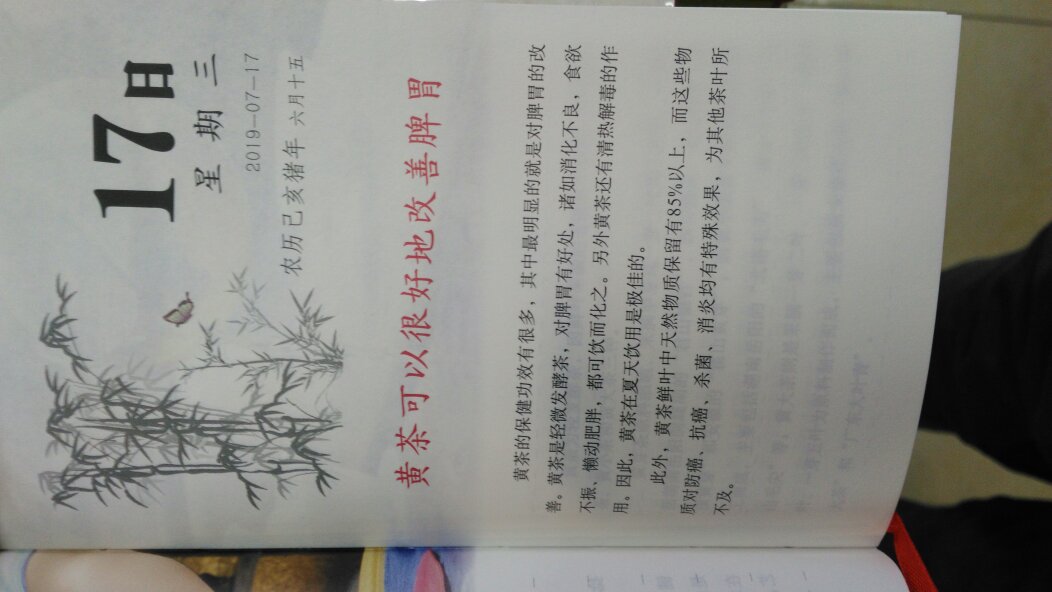 17日
星期三
2019-07-17
农历己亥猪年 六月十五
黄茶可以很好地改善脾胃
黄茶的保健功效有很多，其中最明显的就是对脾胃的改
善。黄茶是轻微发酵茶，对脾胃有好处，诸如消化不良，食欲
不振、懒动肥胖，都可饮而化之。另外黄茶还有清热解毒的作
用。因此，黄茶在夏天饮用是极佳的。
此外，黄茶鲜叶中天然物质保留有85%以上，而这些物
质对防癌、抗癌、杀菌、消炎均有特殊效果，为其他茶叶所
不及。